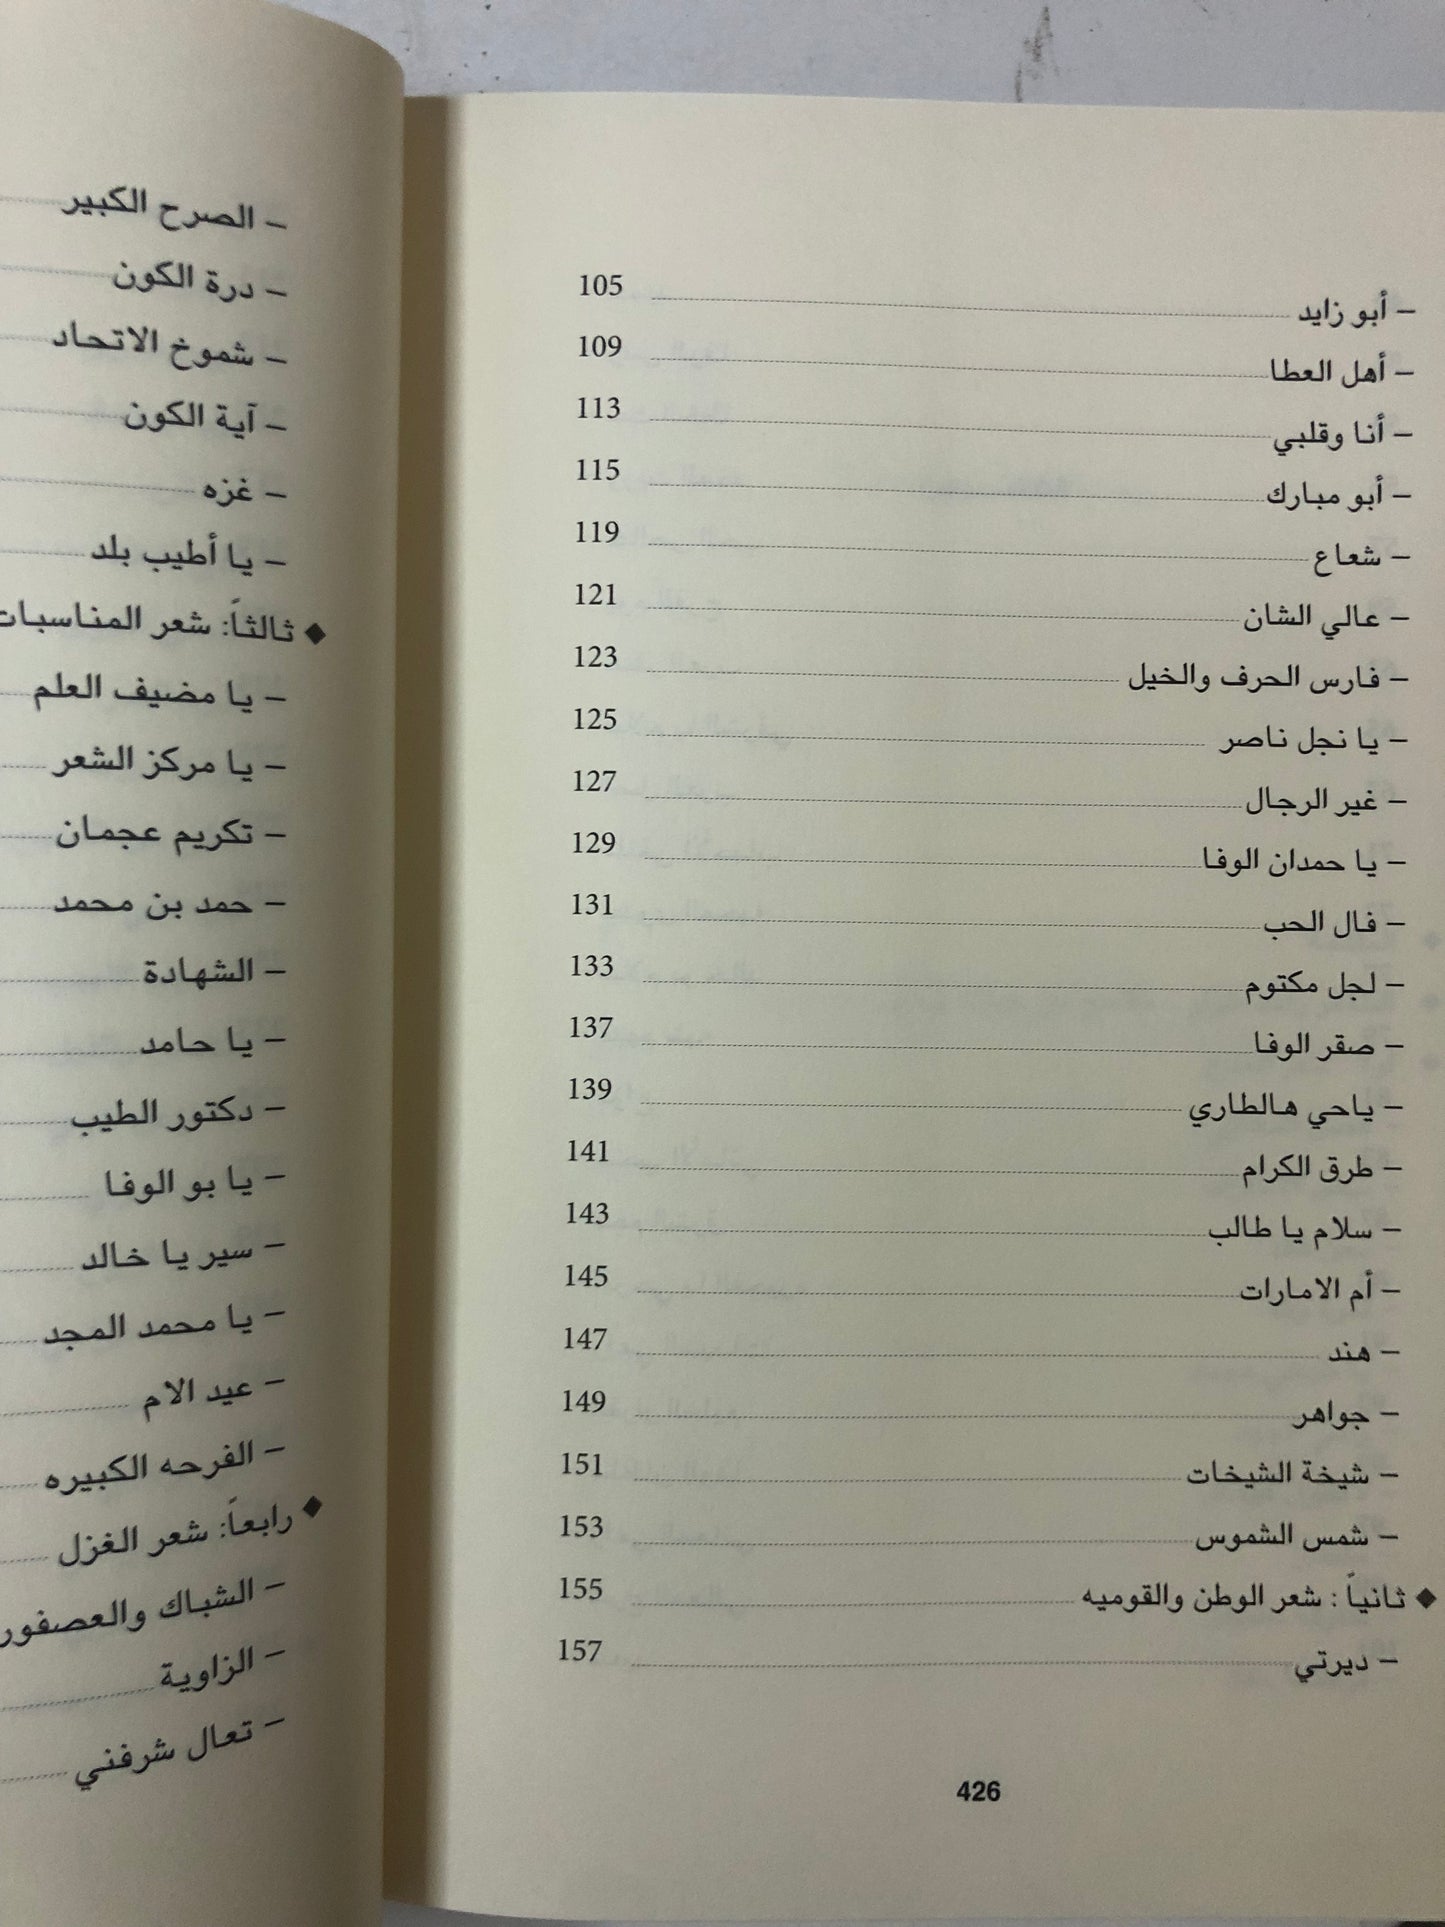 – أبو زايد 105
– أهل العطا 109
– أنا وقلبي 113
– أبو مبارك 115
– شعاع 119
– عالي الشان 121
– فارس الحرف والخيل 123
– يا نجل ناصر 125
– غير الرجال 127
– يا حمدان الوفا 129
– فال الحب 131
– لجل مكتوم 133
– صقر الوفا 137
– ياحي هالطاري 139
– طرق الكرام 141
– سلام يا طالب 143
– أم الامارات 145
– هند 147
– جواهر 149
– شيخة الشيخات 151
– شمس الشموس 153
◆ ثانياً : شعر الوطن والقوميه 155
– ديرتي 157
426
– الصرح الكبير
– درة الكون
– شموخ الاتحاد
– آية الكون
– غزه
– يا أطيب بلد
◆ ثالثاً: شعر المناسبات
– يا مضيف العلم
– يا مركز الشعر
– تكريم عجمان
– حمد بن محمد
– الشهادة
– يا حامد
– دكتور الطيب
– يا بو الوفا
– سير يا خالد
– يا محمد المجد
– عيد الام
– الفرحه الكبيره
◆ رابعاً: شعر الغزل
– الشباك والعصفور
– الزاوية
– تعال شرفني